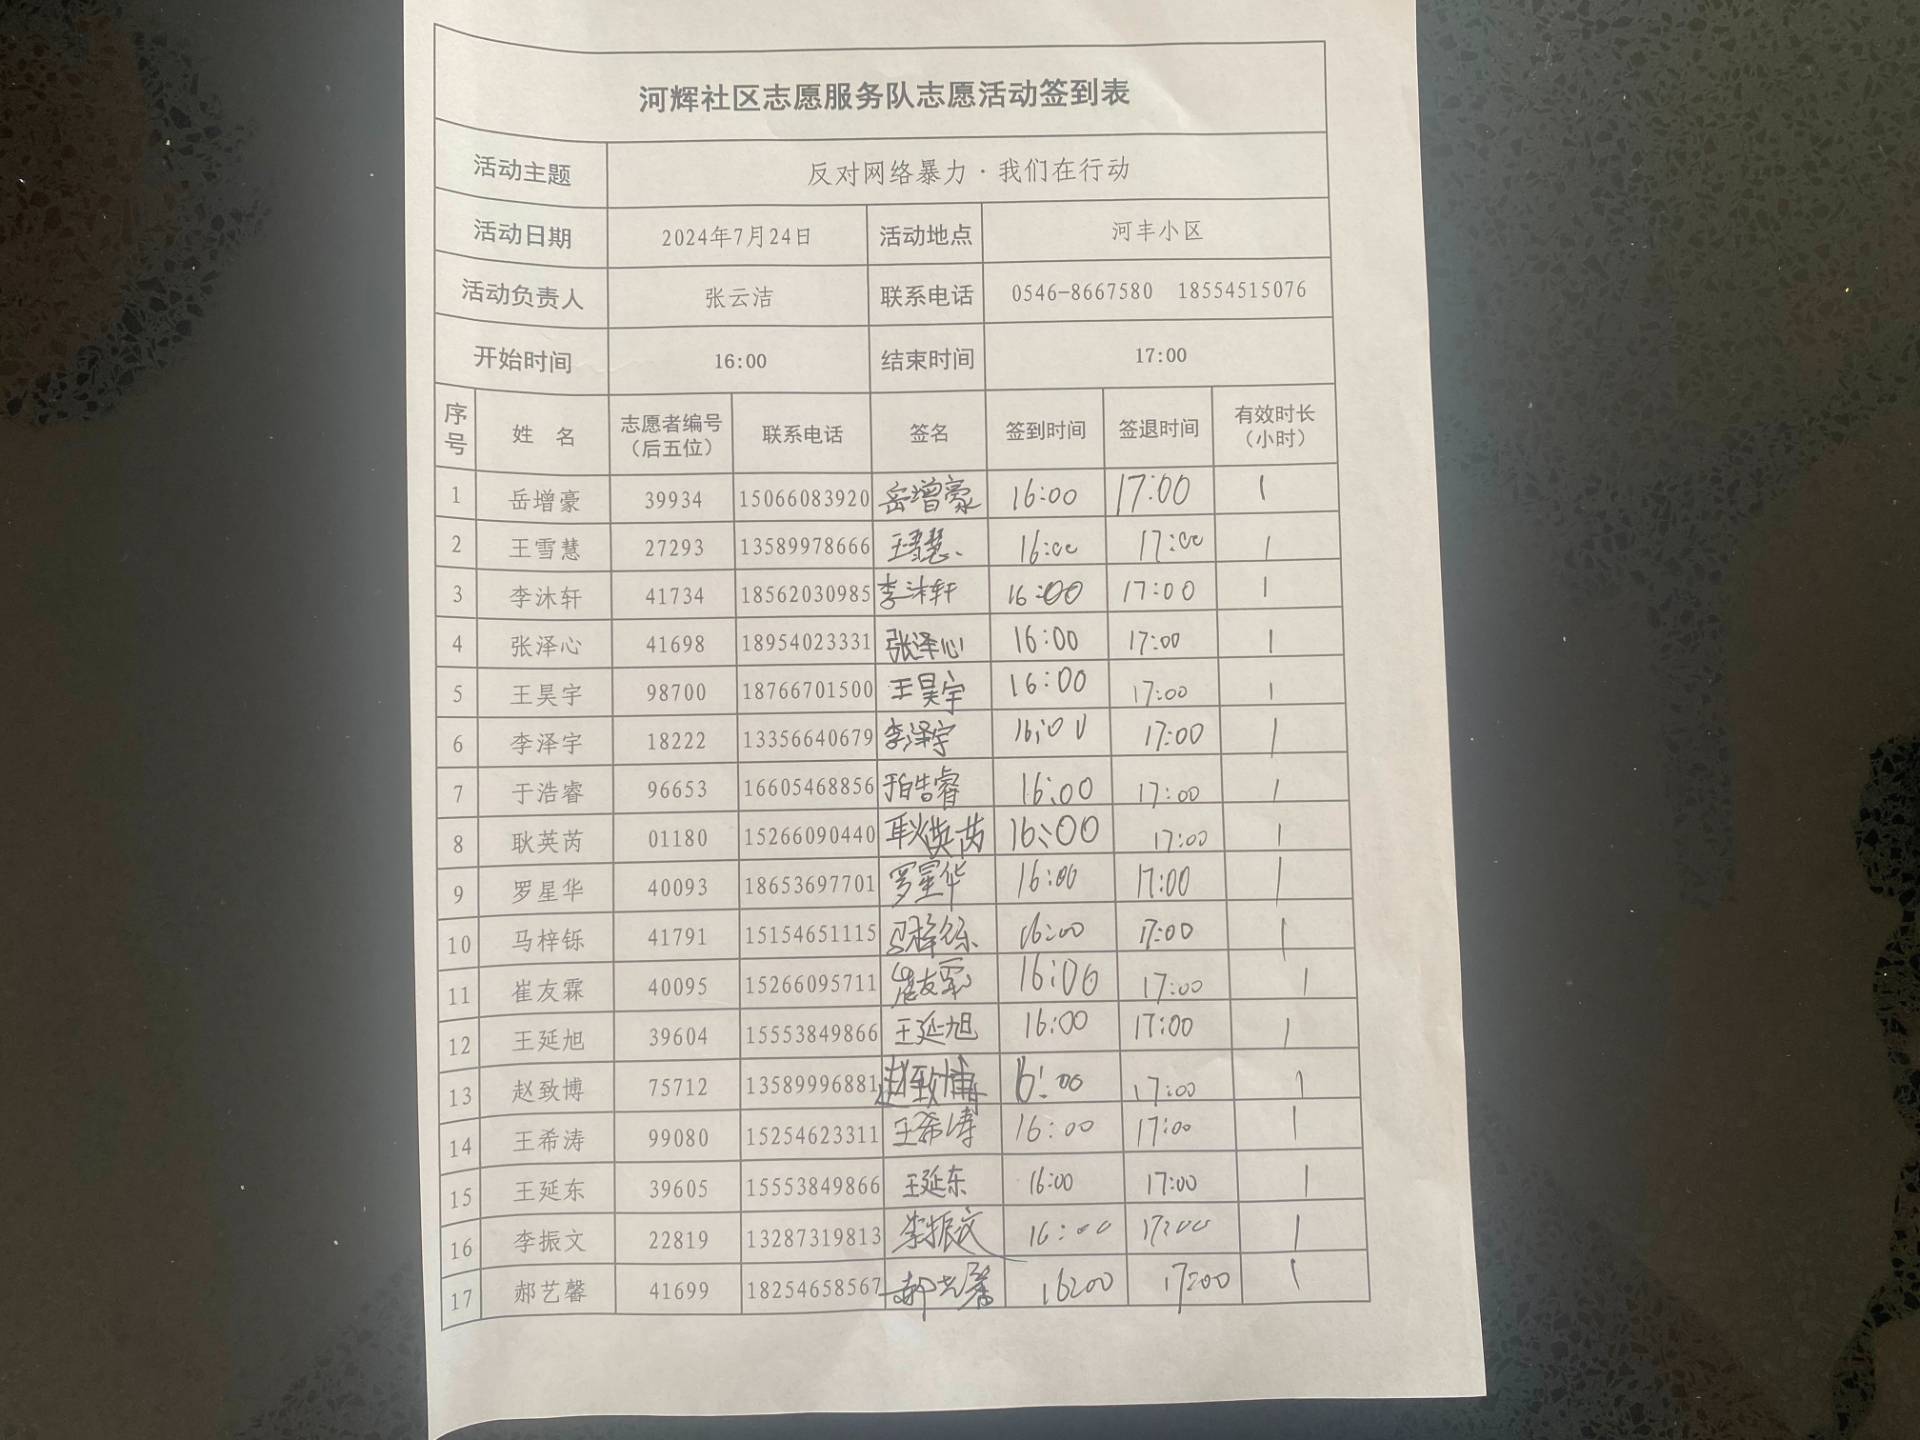 河辉社区志愿服务队志愿活动签到表
活动主题 反对网络暴力·我们在行动
活动日期 2024年7月24日 活动地点 河丰小区
活动负责人 张云洁 联系电话 0546-8667580 18554515076
开始时间 16:00 结束时间 17:00
序号 姓名 志愿者编号（后五位） 联系电话 签名 签到时间 签退时间 有效时长（小时）
1 岳增豪 39934 15066083920 岳增豪 16:00 17:00 1
2 王雪慧 27293 13589978666 王雪慧 16:00 17:00 1
3 李沐轩 41734 18562030985 李沐轩 16:00 17:00 1
4 张泽心 41698 18954023331 张泽心 16:00 17:00 1
5 王昊宇 98700 18766701500 王昊宇 16:00 17:00 1
6 李泽宇 18222 13356640679 李泽宇 16:00 17:00 1
7 于浩睿 96653 16605468856 于浩睿 16:00 17:00 1
8 耿英芮 01180 15266090440 耿英芮 16:00 17:00 1
9 罗星华 40093 18653697701 罗星华 16:00 17:00 1
10 马梓铄 41791 15154651115 马梓铄 16:00 17:00 1
11 崔友霖 40095 15266095711 崔友霖 16:00 17:00 1
12 王延旭 39604 15553849866 王延旭 16:00 17:00 1
13 赵致博 75712 13589996881 赵致博 16:00 17:00 1
14 王希涛 99080 15254623311 王希涛 16:00 17:00 1
15 王延东 39605 15553849866 王延东 16:00 17:00 1
16 李振文 22819 13287319813 李振文 16:00 17:00 1
17 郝艺馨 41699 18254658567 郝艺馨 16:00 17:00 1